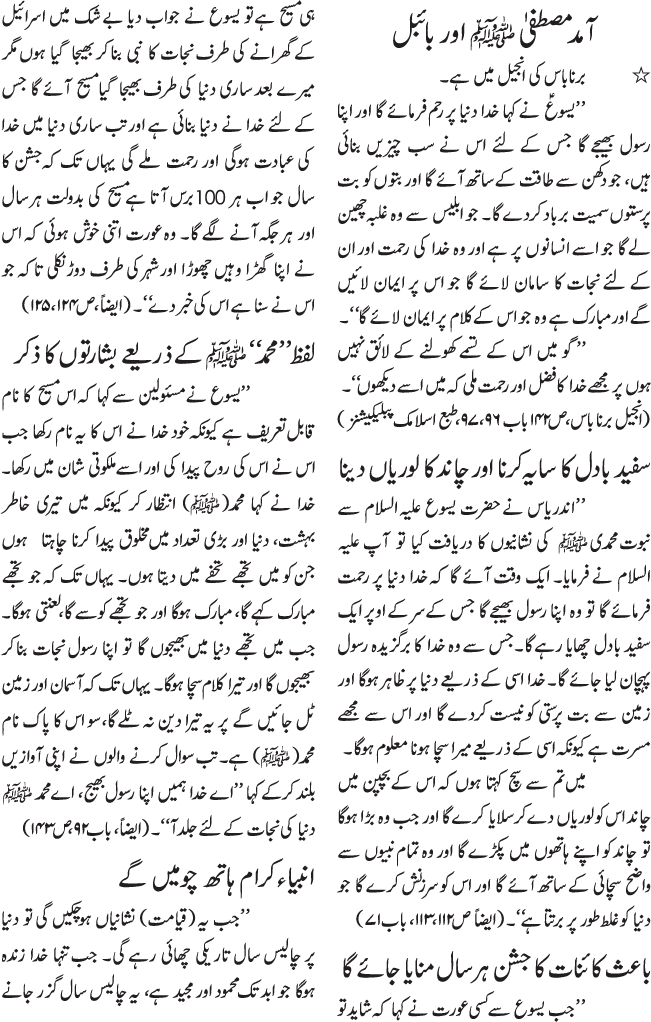 آمد مصطفیٰ ﷺ اور بائبل
☆ برناباس کی انجیل میں ہے۔
’’یسوعؑ نے کہا خدا دنیا پر رحم فرمائے گا اور اپنا
رسول بھیجے گا جس کے لئے اس نے سب چیزیں بنائی
ہیں، جو دکھن سے طاقت کے ساتھ آئے گا اور بتوں کو بت
پرستوں سمیت برباد کردے گا۔ جو ابلیس سے وہ غلبہ چھین
لے گا جو اسے انسانوں پر ہے اور وہ خدا کی رحمت اور ان
کے لئے نجات کا سامان لائے گا جو اس پر ایمان لائیں
گے اور مبارک ہے وہ جو اس کے کلام پر ایمان لائے گا‘‘۔
’’گو میں اس کے تسمے کھولنے کے لائق نہیں
ہوں پر مجھے خدا کا فضل اور رحمت ملی کہ میں اسے دیکھوں‘‘۔
(انجیل برناباس،ص۱۴۲ باب ۹۶،۹۷،طبع اسلامک پبلیکیشنز)
سفید بادل کا سایہ کرنا اور چاند کا لوریاں دینا
’’اندریاس نے حضرت یسوع علیہ السلام سے
نبوت محمدی ﷺ کی نشانیوں کا دریافت کیا تو آپ علیہ
السلام نے فرمایا۔ ایک وقت آئے گا کہ خدا دنیا پر رحمت
فرمائے گا تو وہ اپنا رسول بھیجے گا جس کے سر کے اوپر ایک
سفید بادل چھایا رہے گا۔جس سے وہ خدا کا برگزیدہ رسول
پہچان لیا جائے گا۔ خدا اسی کے ذریعے دنیا پر ظاہر ہوگا اور
زمین سے بت پرستی کو نیست کردے گا اور اس سے مجھے
مسرت ہے کیونکہ اسی کے ذریعے میرا سچا ہونا معلوم ہوگا۔
میں تم سے سچ کہتا ہوں کہ اس کے بچپن میں
چاند اس کو لوریاں دے کر سلایا کرے گا اور جب وہ بڑا ہوگا
تو چاند کو اپنے ہاتھوں میں پکڑے گا اور وہ تمام نبیوں سے
واضح سچائی کے ساتھ آئے گا اور اس کو سرزنش کرے گا جو
دنیا کو غلط طور پر برتتا ہے‘‘۔ (ایضاً ص۱۱۲،۱۱۳، باب۷۱)
باعث کائنات کا جشن ہر سال منایا جائے گا
’’جب یسوع سے کسی عورت نے کہا کہ شاید تو
ہی مسیح ہے تو یسوع نے جواب دیا بے شک میں اسرائیل
کے گھرانے کی طرف نجات کا نبی بناکر بھیجا گیا ہوں مگر
میرے بعد ساری دنیا کی طرف بھیجا گیا مسیح آئے گا جس
کے لئے خدا نے دنیا بنائی ہے اور تب ساری دنیا میں خدا
کی عبادت ہوگی اور رحمت ملے گی یہاں تک کہ جشن کا
سال جو اب ہر 100 برس آتا ہے مسیح کی بدولت ہر سال
اور ہر جگہ آنے لگے گا۔ وہ عورت اتنی خوش ہوئی کہ اس
نے اپنا گھڑا وہیں چھوڑا اور شہر کی طرف دوڑ نکلی تاکہ جو
اس نے سنا ہے اس کی خبر دے‘‘۔ (ایضاً،ص۱۲۴،۱۲۵)
لفظ ’’محمد‘‘ ﷺ کے ذریعے بشارتوں کا ذکر
’’یسوع نے مسئولین سے کہا کہ اس مسیح کا نام
قابل تعریف ہے کیونکہ خود خدا نے اس کا یہ نام رکھا جب
اس نے اس کی روح پیدا کی اور اسے ملکوتی شان میں رکھا۔
خدا نے کہا محمد(ﷺ) انتظار کر کیونکہ میں تیری خاطر
بہشت، دنیا اور بڑی تعداد میں مخلوق پیدا کرنا چاہتا ہوں
جن کو میں تجھے تحفے میں دیتا ہوں۔ یہاں تک کہ جو تجھے
مبارک کہے گا، مبارک ہوگا اور جو تجھے کوسے گا،لعنتی ہوگا۔
جب میں تجھے دنیا میں بھیجوں گا تو اپنا رسول نجات بناکر
بھیجوں گا اور تیرا کلام سچا ہوگا۔ یہاں تک کہ آسمان اور زمین
ٹل جائیں گے پر یہ تیرا دین نہ ٹلے گا،سو اس کا پاک نام
محمد(ﷺ) ہے۔ تب سوال کرنے والوں نے اپنی آوازیں
بلند کرکے کہا ’’اے خدا ہمیں اپنا رسول بھیج، اے محمد ﷺ
دنیا کی نجات کے لئے جلد آ‘‘۔ (ایضاً، باب ۹۲،ص۱۴۳)
انبیاء کرام ہاتھ چومیں گے
’’جب یہ (قیامت) نشانیاں ہوچکیں گی تو دنیا
پر چالیس سال تاریکی چھائی رہے گی۔ جب تنہا خدا زندہ
ہوگا جو ابد تک محمود اور مجید ہے، یہ چالیس سال گزر جانے